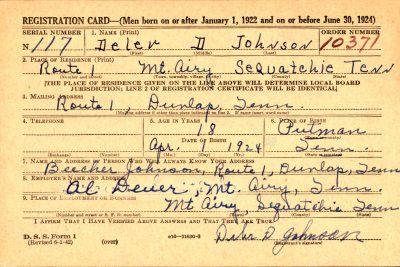 REGISTRATION CARD—(Men born on or after January 1, 1922 and on or before June 30, 1924)
SERIAL NUMBER 1. NAME (Print) ORDER NUMBER
N 117 Deler D Johnson 10371
(First) (Middle) (Last)
2. PLACE OF RESIDENCE (Print)
Route 1 Mt. Airy Sequatchie Tenn
(Number and street) (Town, township, village, or city) (County) (State)
[THE PLACE OF RESIDENCE GIVEN ON THE LINE ABOVE WILL DETERMINE LOCAL BOARD
JURISDICTION; LINE 2 OF REGISTRATION CERTIFICATE WILL BE IDENTICAL]
3. MAILING ADDRESS
Route 1, Dunlap, Tenn.
[Mailing address if other than place indicated on line 2. If same insert word same]
4. TELEPHONE 5. AGE IN YEARS 6. PLACE OF BIRTH
18 Putman
DATE OF BIRTH (Town or county)
Apr. 1 1924 Tenn.
(Exchange) (Number) (Mo.) (Day) (Yr.) (State or country)
7. NAME AND ADDRESS OF PERSON WHO WILL ALWAYS KNOW YOUR ADDRESS
Beecher Johnson, Route 1, Dunlap, Tenn
8. EMPLOYER'S NAME AND ADDRESS
Mt. Airy, Tenn.
9. PLACE OF EMPLOYMENT OR BUSINESS
Mt Airy, Sequatchie Tenn
(Number and street or R. F. D. number) (Town) (County) (State)
I AFFIRM THAT I HAVE VERIFIED ABOVE ANSWERS AND THAT THEY ARE TRUE.
D. S. S. Form 1
(Revised 6-1-42) (over) D. Johnson